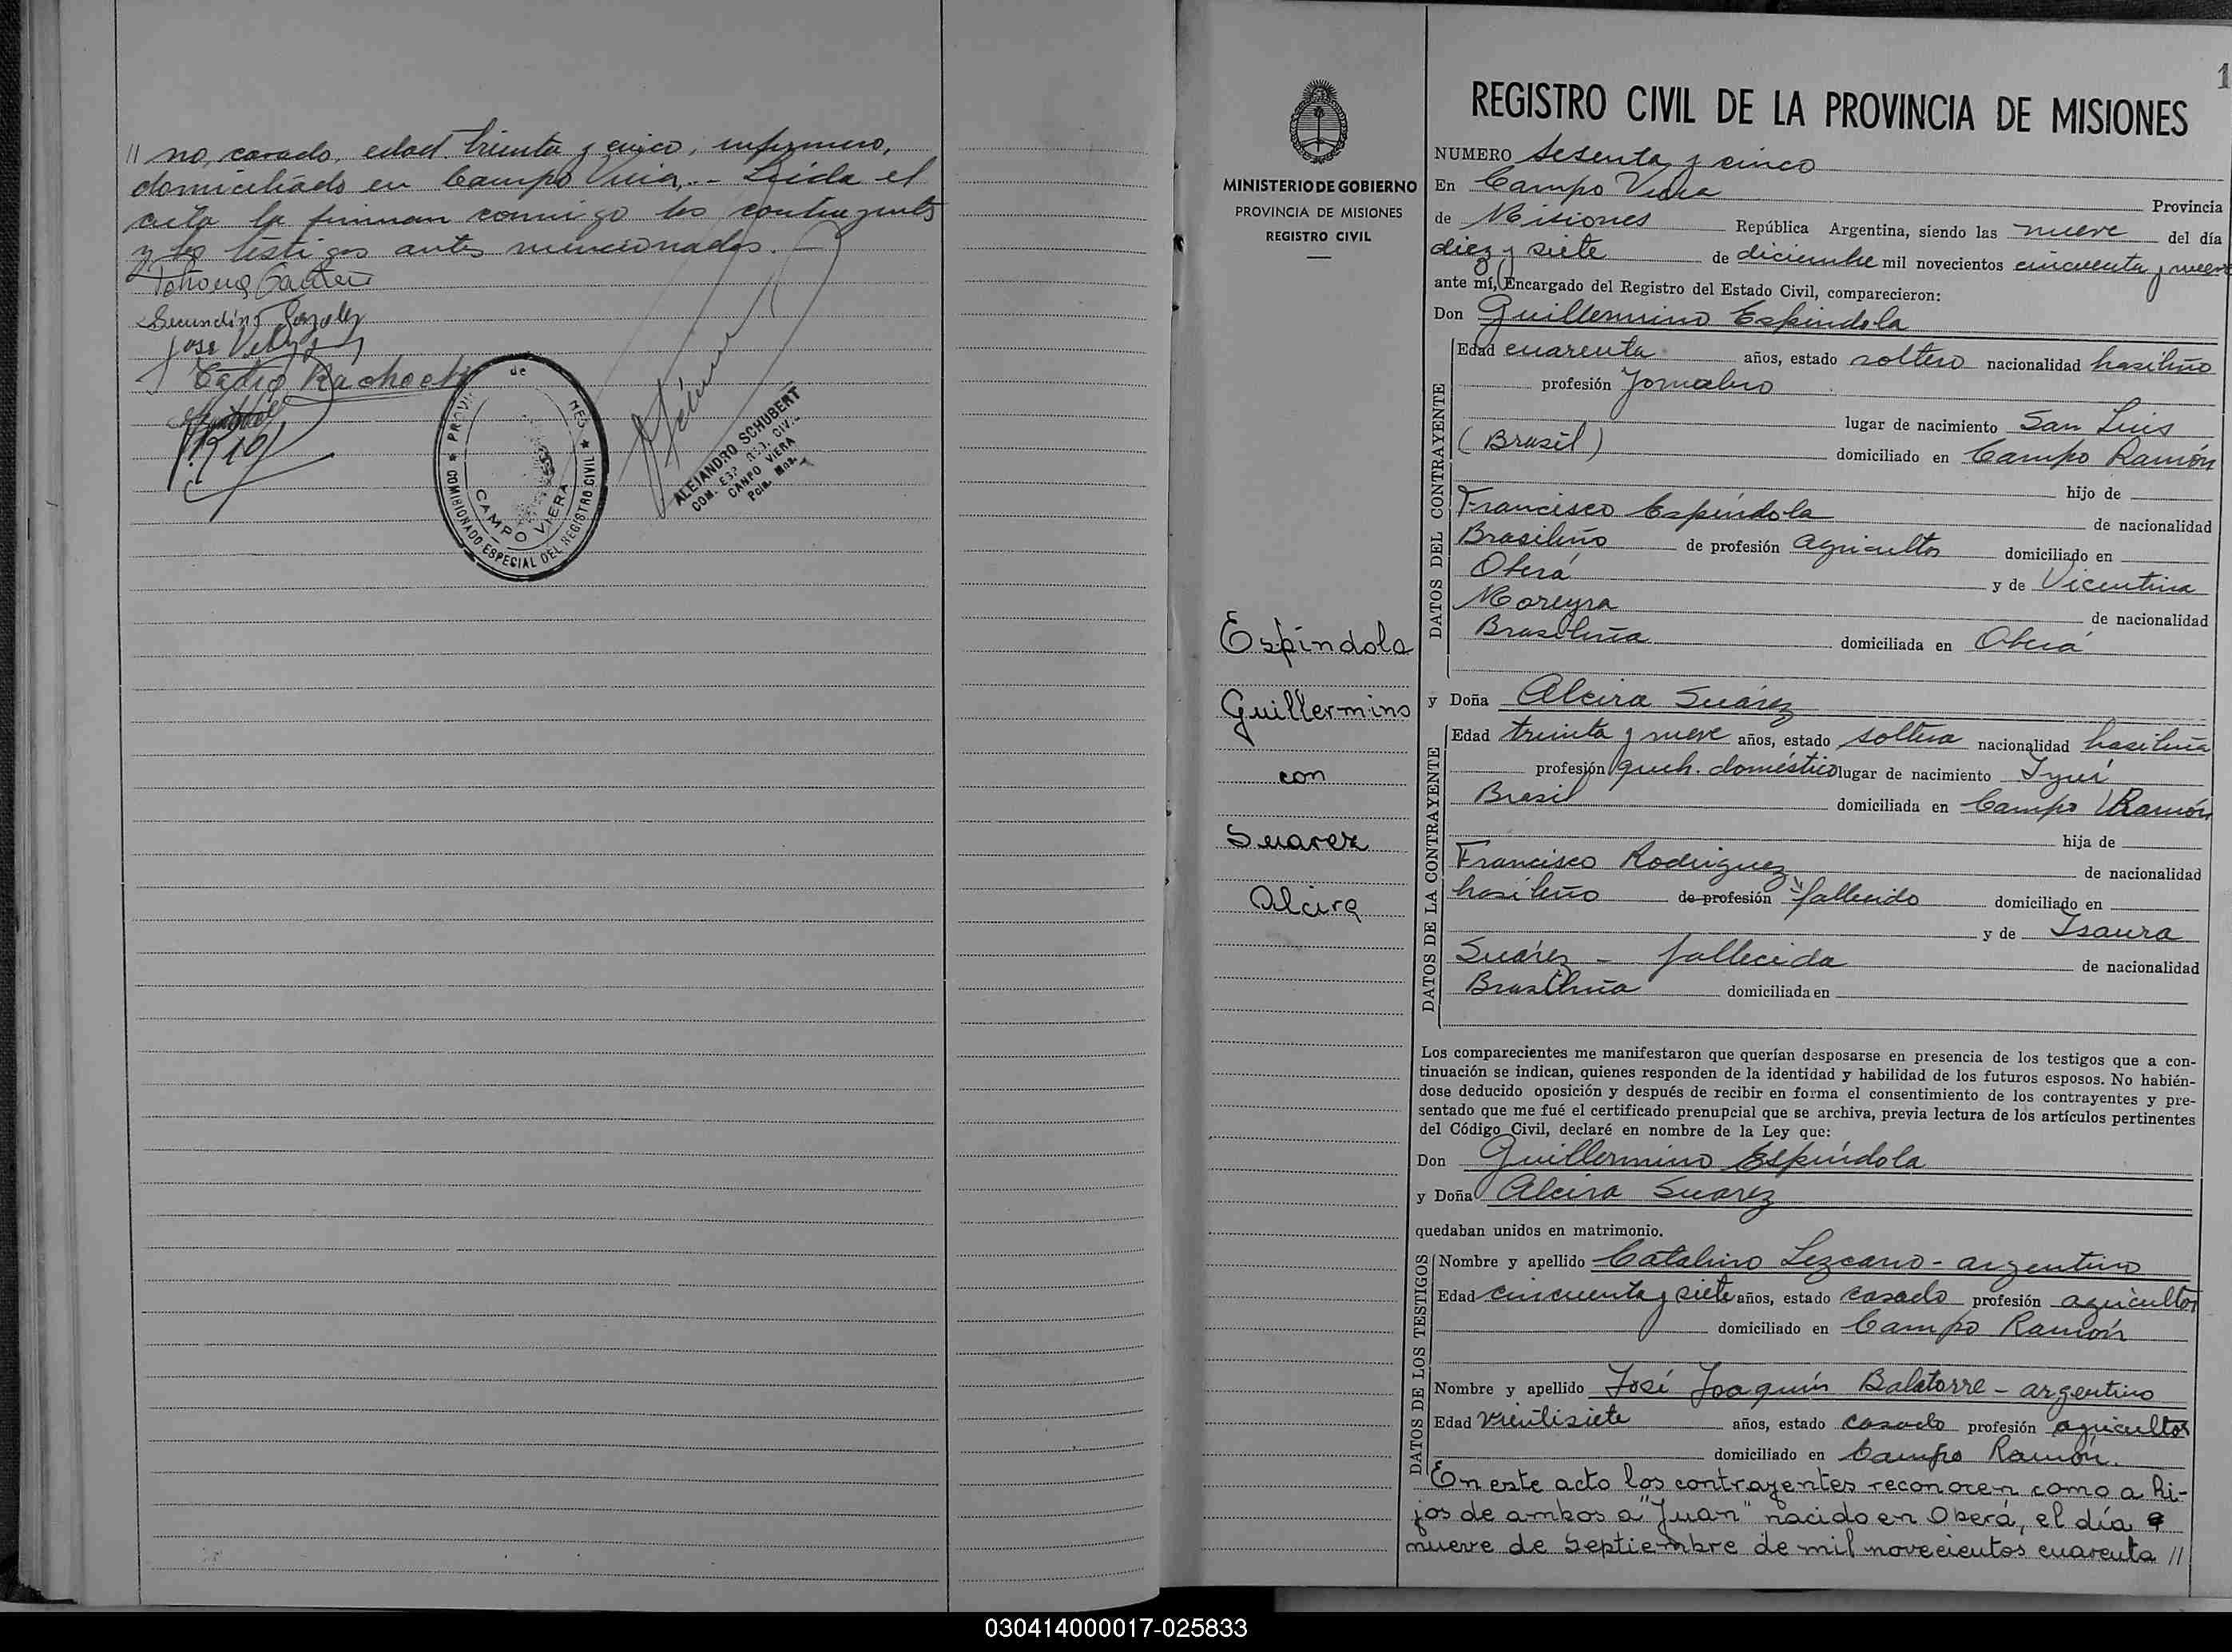 // no, casado, edad treinta y cinco, enfermero,
domiciliado en Campo Viera.- Leída el
acta la firman conmigo los contrayentes
y los testigos antes mencionados.
Secundino Gonzalez
José
de
PROVI
NES
CAMPO VIERA
COMISIONADO ESPECIAL DEL REGISTRO CIVIL
ALEJANDRO SCHUBERT
COM. ESP. REG. CIVIL
CAMPO VIERA
Pcia. Mnes.
1
MINISTERIO DE GOBIERNO
PROVINCIA DE MISIONES
REGISTRO CIVIL
Espíndola
Guillermino
con
Suarez
Alcira
REGISTRO CIVIL DE LA PROVINCIA DE MISIONES
NUMERO Sesenta y cinco
En Campo Viera Provincia
de Misiones República Argentina, siendo las nueve del día
diez y siete de diciembre mil novecientos cincuenta y nueve
ante mí, Encargado del Registro del Estado Civil, comparecieron:
Don Guillermino Espíndola
DATOS DEL CONTRAYENTE
Edad cuarenta años, estado soltero nacionalidad brasileño
profesión Jornalero
lugar de nacimiento San Luis
(Brasil) domiciliado en Campo Ramón
hijo de
Francisco Espíndola de nacionalidad
Brasileño de profesión agricultor domiciliado en
Oberá y de Vicentina
Moreyra de nacionalidad
Brasileña domiciliada en Oberá
y Doña Alcira Suárez
DATOS DE LA CONTRAYENTE
Edad treinta y nueve años, estado soltera nacionalidad brasileña
profesión queh. doméstico lugar de nacimiento Iyuí
Brasil domiciliada en Campo Ramón
hija de
Francisco Rodriguez de nacionalidad
brasileño de profesión fallecido domiciliado en
y de Isaura
Suárez - fallecida de nacionalidad
Brasileña domiciliada en
Los comparecientes me manifestaron que querían desposarse en presencia de los testigos que a con-
tinuación se indican, quienes responden de la identidad y habilidad de los futuros esposos. No habién-
dose deducido oposición y después de recibir en forma el consentimiento de los contrayentes y pre-
sentado que me fué el certificado prenupcial que se archiva, previa lectura de los artículos pertinentes
del Código Civil, declaré en nombre de la Ley que:
Don Guillermino Espíndola
y Doña Alcira Suarez
quedaban unidos en matrimonio.
DATOS DE LOS TESTIGOS
Nombre y apellido Catalino Lezcano - argentino
Edad cincuenta y siete años, estado casado profesión agricultor
domiciliado en Campo Ramón
Nombre y apellido José Joaquín Balatorre - argentino
Edad veintisiete años, estado casado profesión agricultor
domiciliado en Campo Ramón.
En este acto los contrayentes reconocen como a hi-
jos de ambos a "Juan" nacido en Oberá, el día
nueve de Septiembre de mil novecientos cuarenta //
030414000017-025833